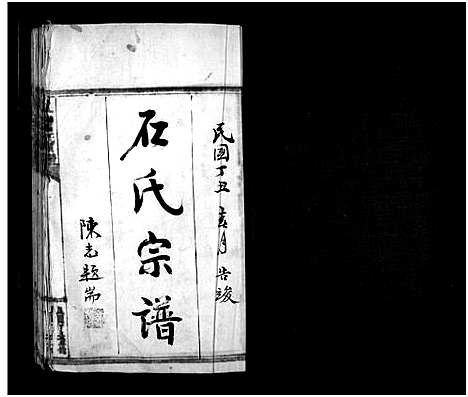 民國丁丑 月告竣
石氏宗譜
陳志題耑